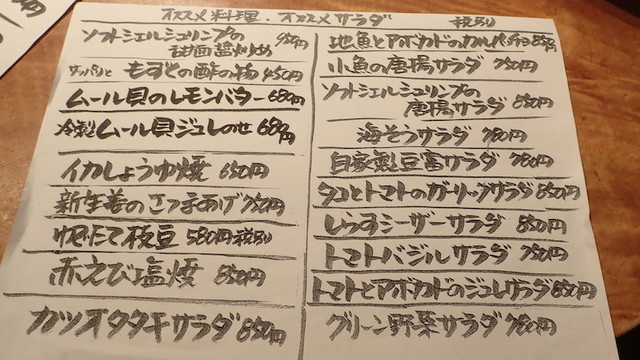 オススメ料理・オススメサラダ 税別
ソフトシェルシュリンプの
塩炒め 950円
サッパリと もずくの酢の物 450円
ムール貝のレモンバター 680円
冷製ムール貝ジュレのせ 680円
イカしょうゆ焼 650円
新生姜のさつまあげ 750円
ゆでたて枝豆 580円(税別)
赤えび塩焼 850円
カツオタタキサラダ 850円
地魚とアボカドのカルパッチョ 850円
小魚の唐揚サラダ 750円
ソフトシェルシュリンプの
唐揚サラダ 850円
海そうサラダ 780円
自家製豆富サラダ 780円
タコとトマトのガーリックサラダ 850円
しらすシーザーサラダ 850円
トマトバジルサラダ 750円
トマトとアボカドのジュレサラダ 850円
グリーン野菜サラダ 780円